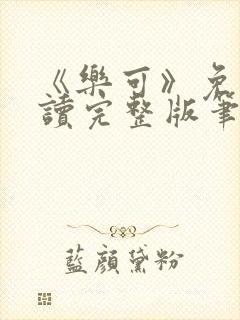 《樂可》免
讀完整版筆
藍顏黛粉